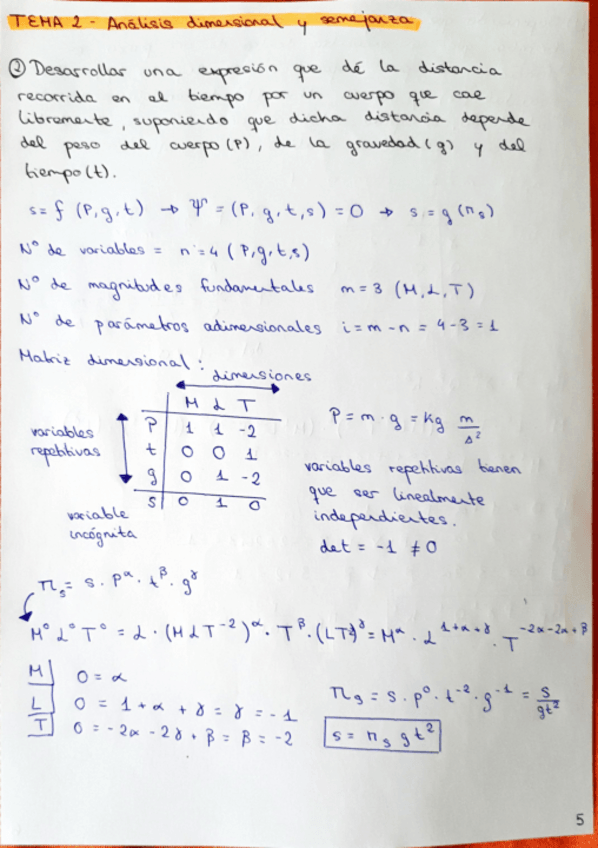 TEMA 2 - Análisis dimensional y semejanza
② Desarrollar una expresión que dé la distancia
recorrida en el tiempo por un cuerpo que cae
libremente, suponiendo que dicha distancia depende
del peso del cuerpo (P), de la gravedad (g) y del
tiempo (t).
s = f (P, g, t) → Ψ = (P, g, t, s) = 0 → s = g (π_s)
Nº de variables = n = 4 (P, g, t, s)
Nº de magnitudes fundamentales m = 3 (M, L, T)
Nº de parámetros adimensionales i = m - n = 4 - 3 = 1
Matriz dimensional:
dimensiones
M L T
P 1 1 -2
t 0 0 1
g 0 1 -2
s 0 1 0
variables
repetitivas
variable
incógnita
P = m · g = Kg m/s²
variables repetitivas tienen
que ser linealmente
independientes.
det = -1 ≠ 0
π_s = s · P^α · t^β · g^γ
M⁰ L⁰ T⁰ = L · (M L T⁻²)^α · T^β · (L T⁻²)^γ = M^α · L^(1+α+γ) · T^(-2α-2α+β)
M 0 = α
L 0 = 1 + α + γ = γ = -1
T 0 = -2α - 2γ + β = β = -2
π_s = s · P⁰ · t⁻² · g⁻¹ = s/gt²
s = π_s g t²
5